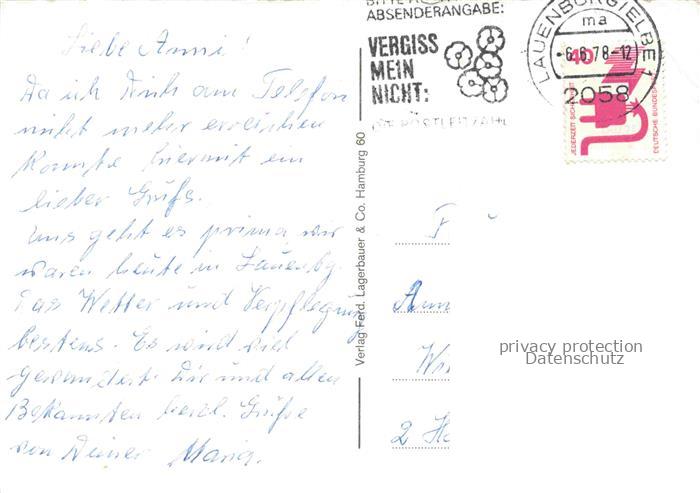 Liebe Anni!
Da ich Dich am Telefon
nicht mehr erreichen
konnte hiermit ein
lieber Gruß.
Uns geht es prima, wir
waren heute in Lauenbg.
Das Wetter und Verpflegung
bestens. Es wird viel
gewandert. Dir und allen
Bekannten herzl. Grüße
von Deiner Maria.
Verlag Ferd. Lagerbauer & Co. Hamburg 60
ABSENDERANGABE:
VERGISS
MEIN
NICHT:
LAUENBURG/ELBE 1
ma
-6.6.78-12
2058
40
JEDERZEIT SICH
DEUTSCHE BUNDES
F
Ann
Wi
2 H
privacy protection
Datenschutz